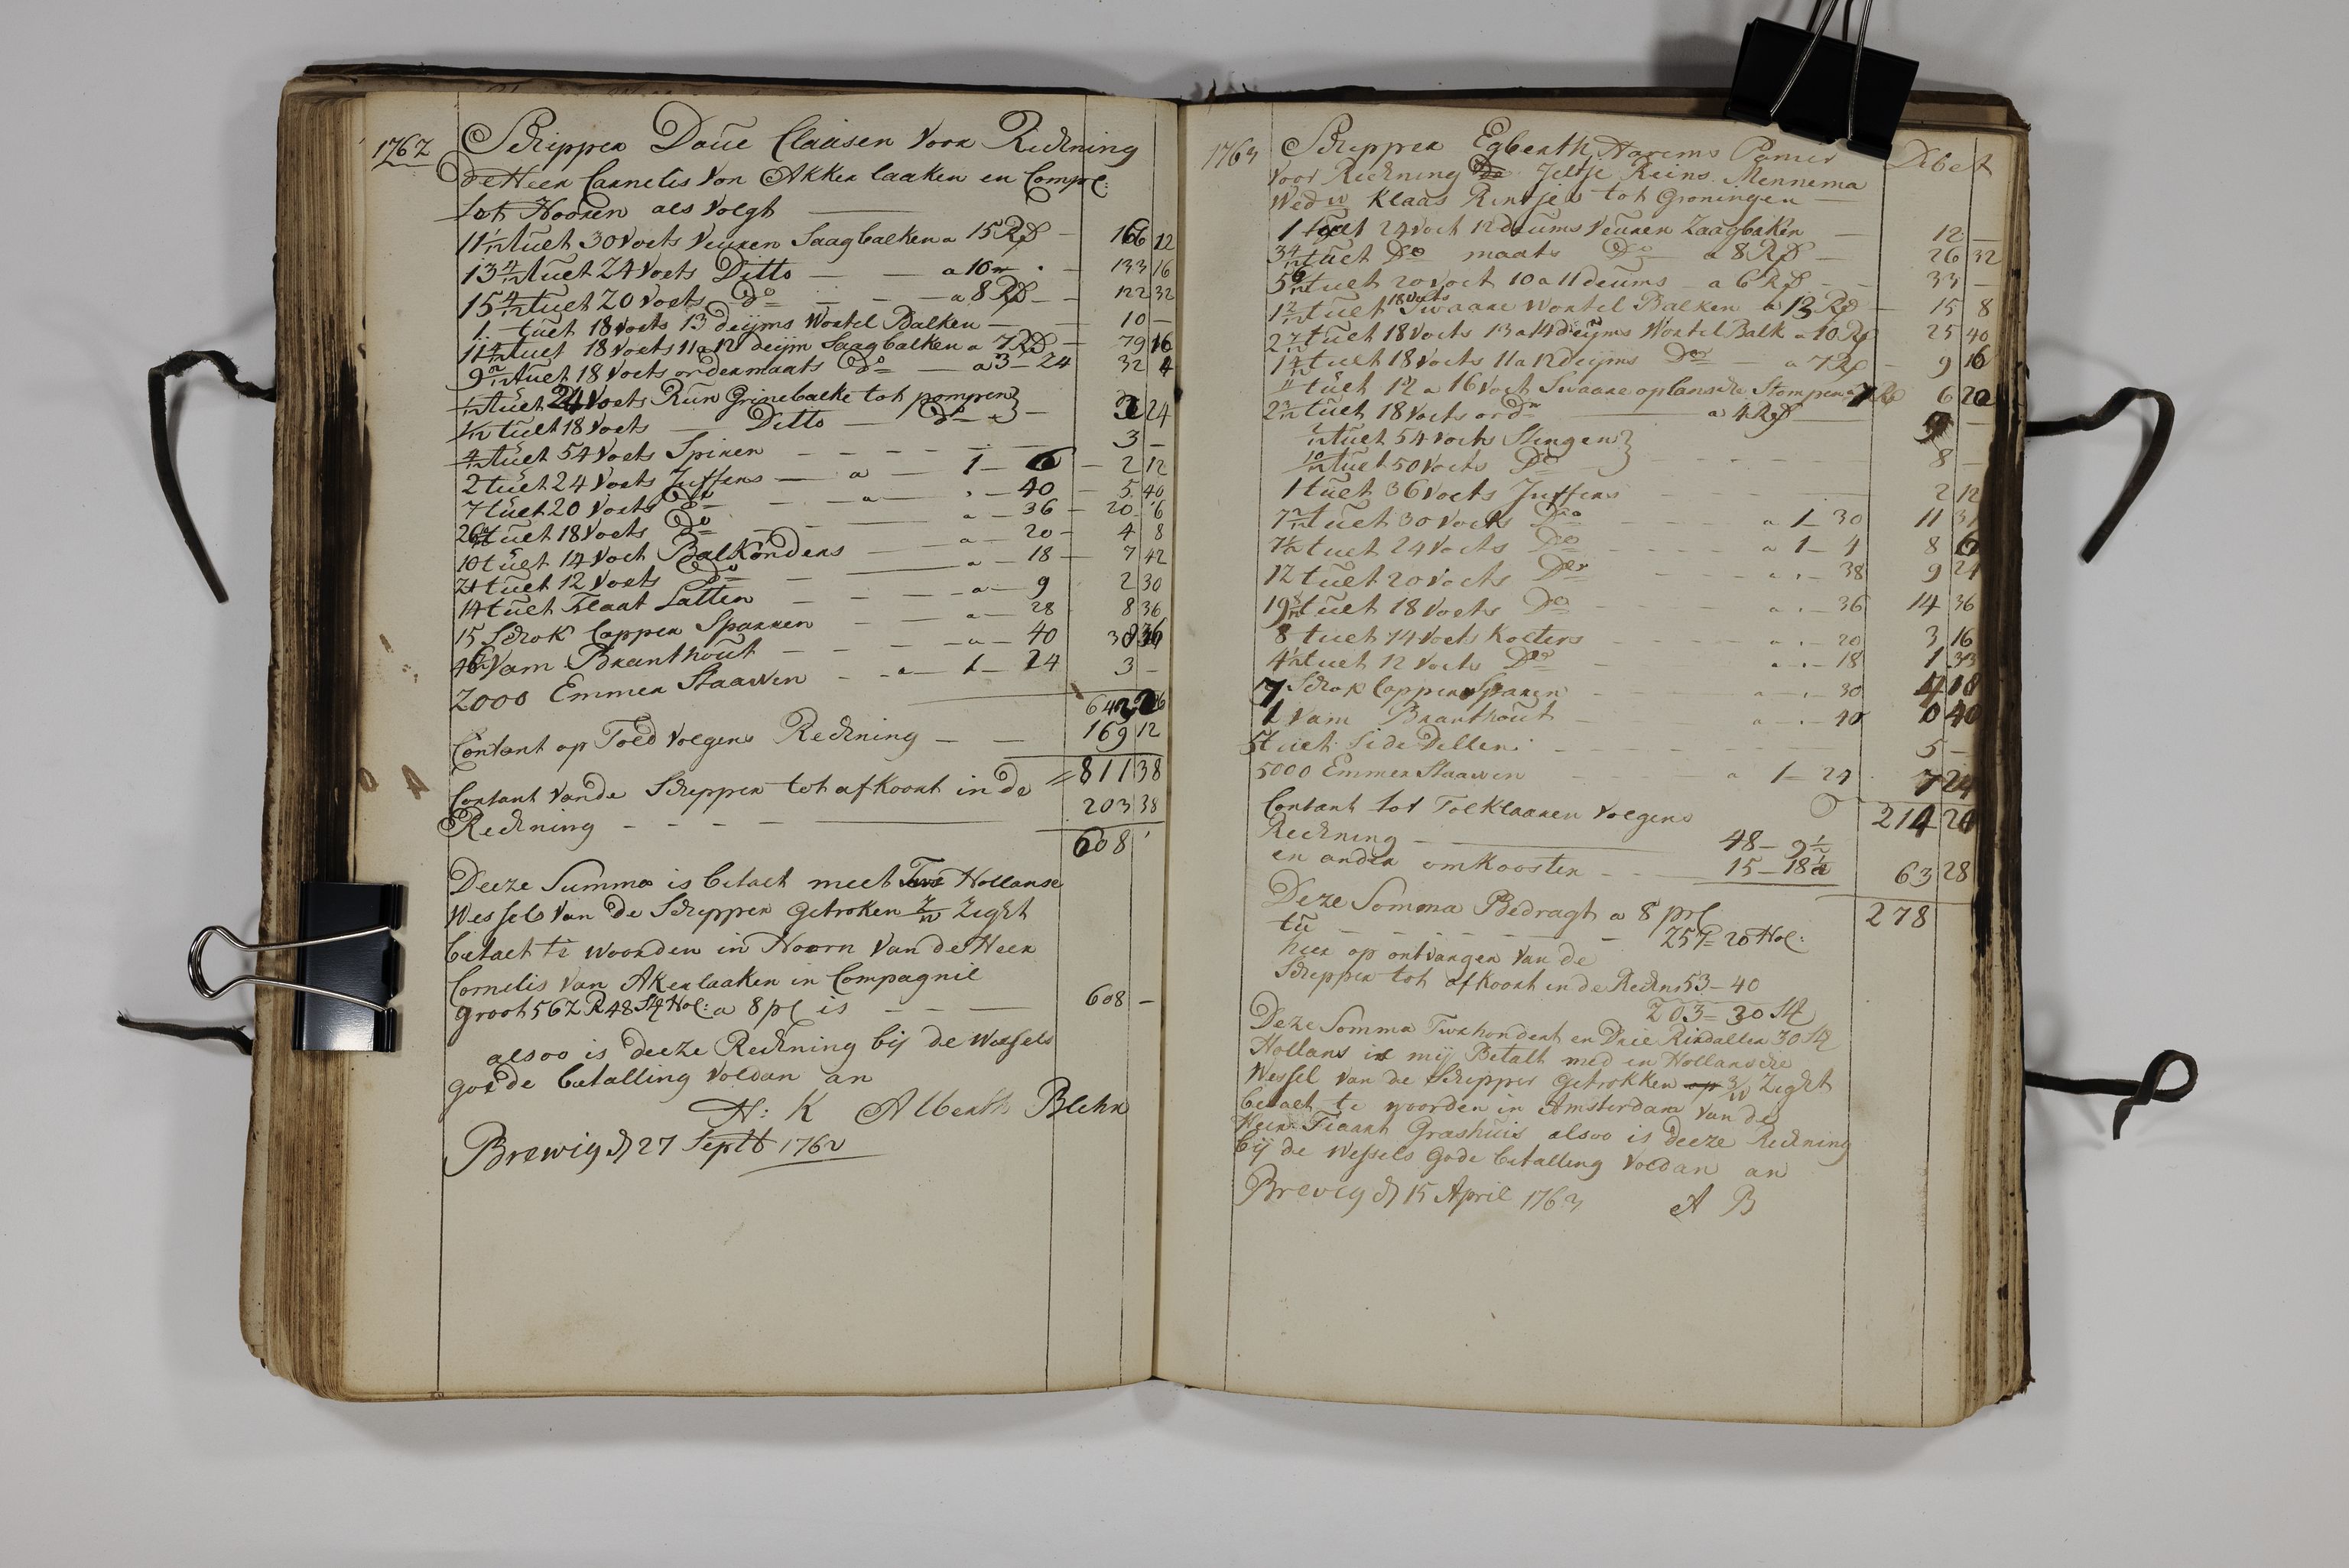 1762 Schipper Doue Claasen Voor Reckning
de Heer Cornelis Von Akkerlaaken en Comp:
tot Hooren als Volgt
11 1/12 tuet 30 Voets Veuren Saagbalken a 15 Rd — 166 12
13 4/12 tuet 24 Voets Ditto — a 10 — 133 16
15 4/12 tuet 20 Voets do — a 8 Rd — 122 32
1 tuet 18 Voets 13 deijms Wortel Balken — 10 —
11 4/12 tuet 18 Voets 11 a 12 deijm Saagbalken a 7 Rd — 79 16
9 2/12 tuet 18 Voets ordermaats do — a 3 — 24 32 4
1/12 tuet 24 Voets Run Grinebalke tot pompen
1/12 tuet 18 Voets — Ditto — do — 3 24
4/12 tuet 54 Voets Spiren — 3 —
2 tuet 24 Voets Juffers — a 1 — 6 — 2 12
7 tuet 20 Voets do — a — 40 — 5 40
26 tuet 18 Voets do — a — 36 — 20 6
10 tuet 14 Voet Balkonders — a — 20 — 4 8
21 tuet 12 Voets do — a — 18 — 7 42
14 tuet Klaat Latten — a — 9 2 30
15 Schok Capper Sparren — a — 28 8 36
46 Vam Branthout — a — 40 36
2000 Emmer Staaven — a — 1 — 24 3 —
642 26
Contant op Toed Volgens Reckning — 169 12
811 38
Contant van de Schipper tot afkoort in de
Reckning — 203 38
608
Deeze Summa is betaelt meet Hollanse
Wessels van de Schipper getroken Zight
betaelt te woorden in Hoorn Van de Heer
Cornelis van Akerlaaken in Compagnie
groot 562 R 48 St Hol: a 8 pC is — 608 —
alsoo is deeze Reckning bij de Wessels
goede betalling voldan an
N: K Alberth Blehr
Brewig d 27 Septb 1762
1763 Schipper Egberth Harems Pamer Debet
Voor Reckning Jeltje Reins Mennema
Wed w Klaas Rintjes tot Groningen —
1 tuet 24 Voet 12 deums Veuren Zaagbalken — 12 —
3 4/12 tuet do maats do a 8 Rd — 26 32
5 6/12 tuet 20 voet 10 a 11 deums — a 6 Rd — 33 —
1 2/12 tuet 18 Voets Swaare Wortel Balken a 13 Rd — 15 8
2 7/12 tuet 18 Voets 13 a 14 deijms Wortel Balk a 10 Rd 25 40
1 4/12 tuet 18 Voets 11 a 12 deijms do — a 7 Rd — 9 16
11/12 tuet 12 a 16 Voet Swaare Stompen a 7 Rd 6 20
2 3/12 tuet 18 Voets ordr — a 4 Rd — 9 —
2/12 tuet 54 Voets Stingen
10/12 tuet 50 Voets do — 8 —
1 tuet 36 Voets Juffers — 2 12
7 2/12 tuet 30 Vocks do — a 1 — 30 11 31
7 1/2 tuet 24 Voets do — a 1 — 4 8 6
12 tuet 20 Voets do — a — 38 9 24
19 8/12 tuet 18 Voets do — a — 36 14 36
8 tuet 14 Voets Kolters — a — 20 3 16
4 1/2 tuet 12 Voets do — a — 18 1 33
7 Schok Capper Sparen — a — 30 4 18
1 Vam Branthout — a — 40 0 40
5 tuet Side Dellen — 5 —
5000 Emmer Staaven — a 1 — 24 7 24
214 20
Contant tot Tolklaaren Volgens
Reckning — 48 — 9 1/2
en ander omkooster — 15 — 18 1/2 63 28
278
Deze Somma Bedragt a 8 prC
tu — 257 = 20 Hol:
hier op ontvangen Van de
Schipper tot afkoort in de Reckn 53 — 40
203 = 30 St
Deze Somma Twehondert en Drie Risdaller 30 St
Hollans is mij Betalt med en Hollansche
Wessel Van de Schipper getrokken Zight
betaelt te woorden in Amsterdam Van de
Heer Grashuis alsoo is deeze Reckning
bij de Wessels gode betalling Voldan an
Brevig d 15 April 1763 A B